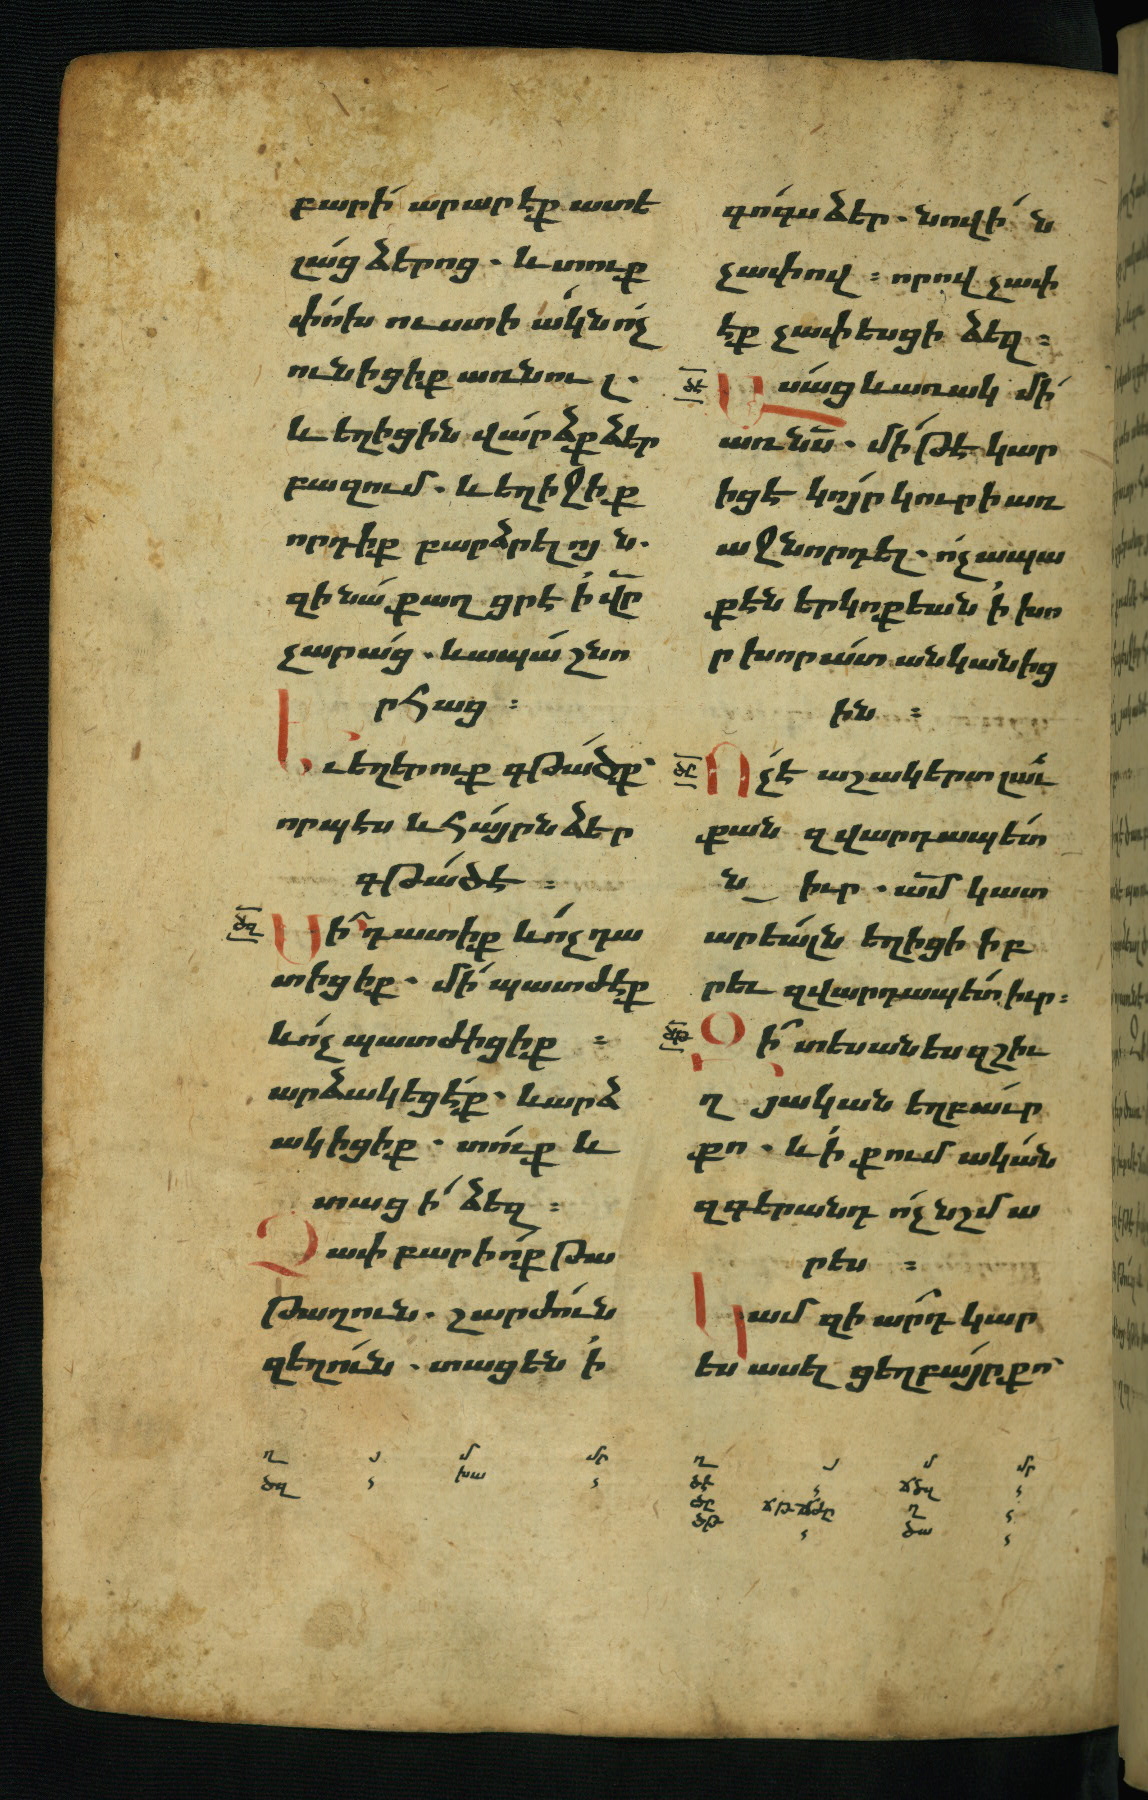 բարի՛ արարէք ատե
լա՛ց ձերոց . և տուք
փո՛խ ուստի ա՛կն ո՛չ
ունիցիք առնուլ .
և եղիցին վա՛րձք ձեր
բազում . և եղիջիք
որդիք բարձրելոյն .
զի նա՛ քաղցր է ի՛ վր
չարա՛ց . և ապա՛շնո
րհաց :
Եւ եղերուք գթա՛ծք՝
որպէս և հա՛յրն ձեր
գթա՛ծ է :
ծզ Մի՛ դատիք և ո՛չ դա
տիցիք . մի՛ պատժէք
և ո՛չ պատժիցիք :
արձակեցէ՛ք . և արձ
ակիցիք . տո՛ւք և
տացի՛ ձեզ :
Չափ բարիո՛ք թա
թաղուն . շարժո՛ւն
զեղո՛ւն . տացեն ի՛
գո՛գս ձեր . նովի՛ն
չափով : որով չափ
էք չափեսցի ձեզ :
ծէ Ասա՛ց և առակ մի՛
առ նս . մի՛ թէ կար
իցէ կո՛յր կուրի առ
աջնորդել . ո՛չ ապա
քէն երկոքեան ի՛ խո
րխորա՛տ անկանից
ին :
ծը Ո՛չ է աշակերտ լա՛ւ
քան զվարդապե՛տ
ն իւր . ամ կատ
արեա՛լն եղիցի իբ
րեւ զվարդապե՛տ իւր :
ծթ Զի՞ տեսանես զշիւ
ղ յական եղբա՛ւր
քո . և ի՛ քում ակա՛ն
զգերանդ ո՛չ նշմա
րես :
Կամ զի արդ կար
ես ասել ցեղբա՛յր քո՝
ղ յ մ մր
ծզ խա
ղ յ մ մր
ծէ ճծզ
ծը ճթ ճժը ղ
ծթ ծա